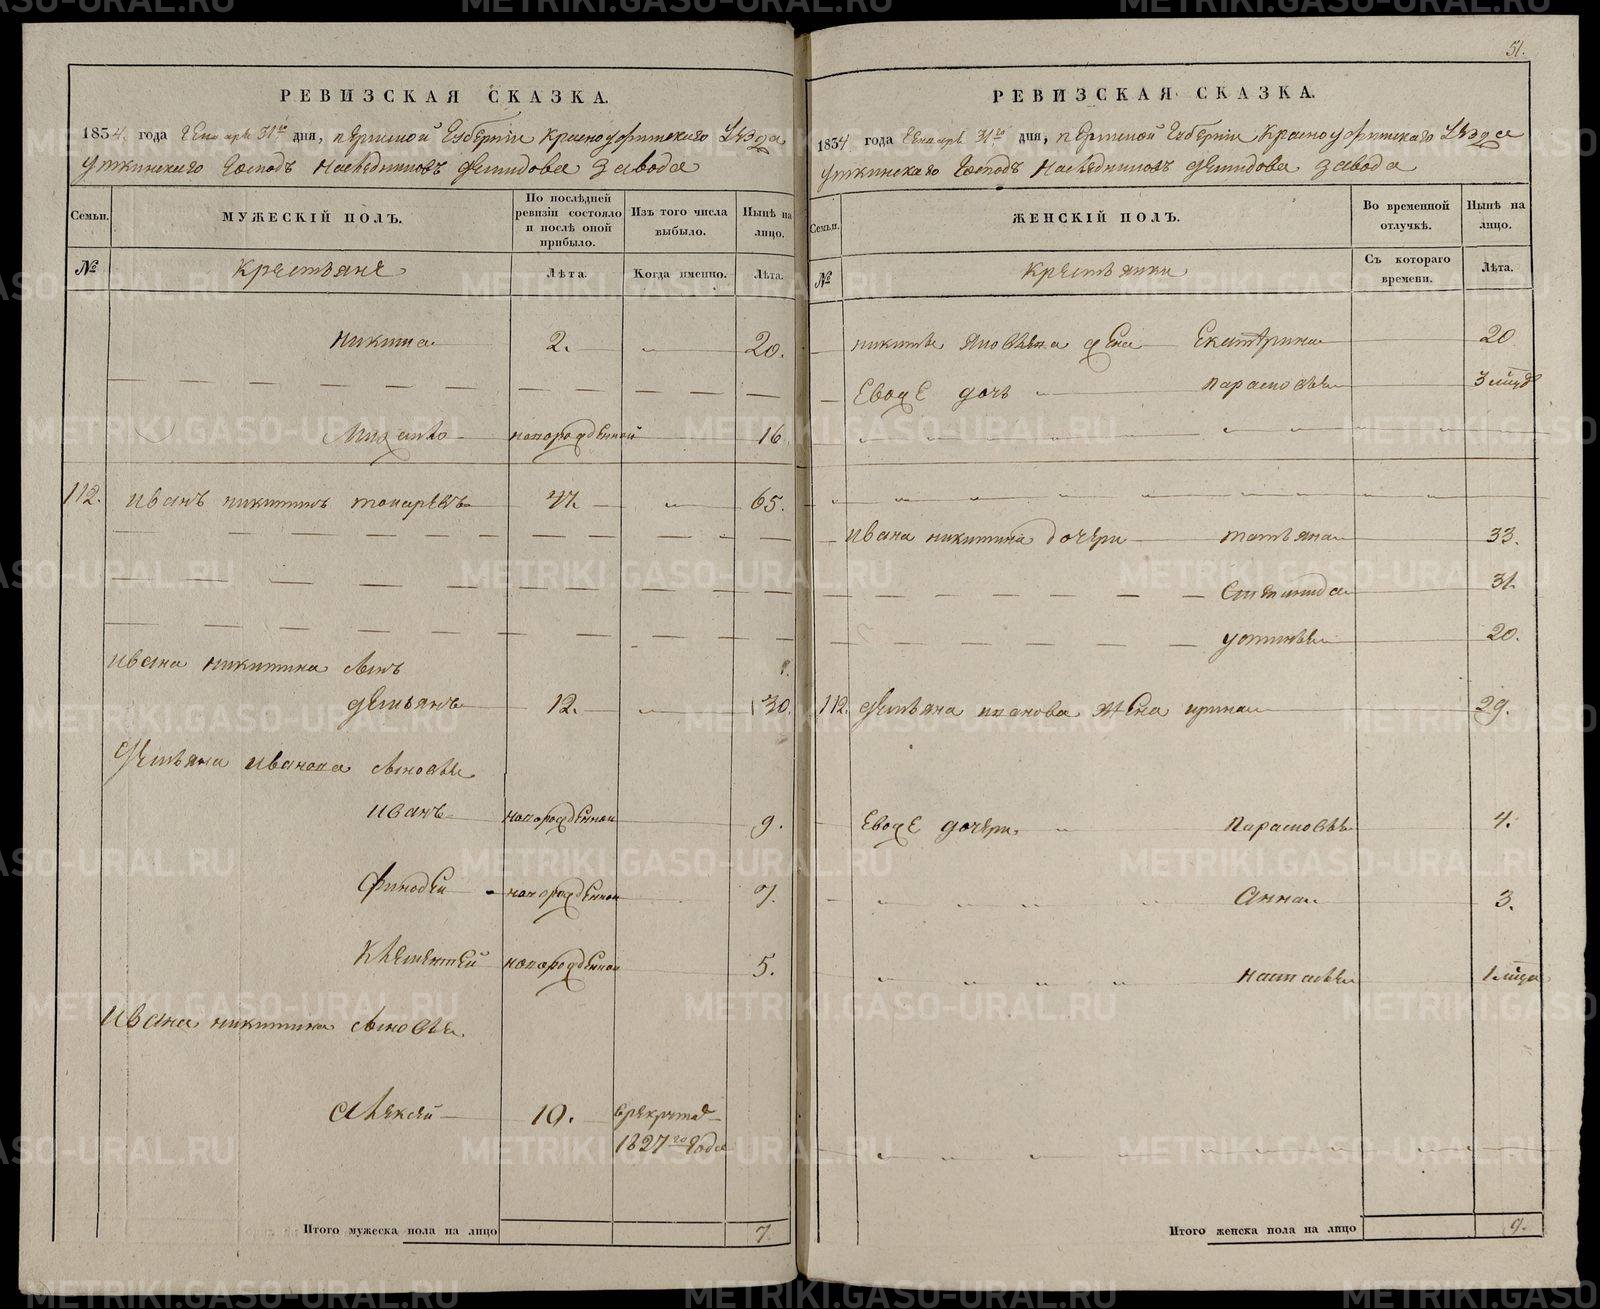 РЕВИЗСКАЯ СКАЗКА.
1834. года Генваря 31го дня, Пермской Губернии Красноуфимского Уезда
Уткинского Господъ Наследниковъ Демидова завода
Семьи.
МУЖЕСКІЙ ПОЛЪ.
По послѣдней ревизіи состояло и послѣ оной прибыло.
Изъ того числа выбыло.
Нынѣ на лицо.
№
Крестьяне
Лѣта.
Когда именно.
Лѣта.
Никита 2. 20.
новорожденной 16
112. Иванъ Никитинъ Токаревъ 47. 65.
Ивана Никитина сынъ
Демьянъ 12. 30.
Демьяна Иванова сыновья
Иванъ новорожденной 9.
новорожденной 7.
Клементей новорожденной 5.
Ивана Никитина сыновья
Алексей 10. в рекруты
1827го года
Итого мужеска пола на лицо 7.
51.
РЕВИЗСКАЯ СКАЗКА.
1834 года Генваря 31го дня, Пермской Губернии Красноуфимского Уезда
Уткинского Господъ Наследниковъ Демидова завода
Семьи.
ЖЕНСКІЙ ПОЛЪ.
Во временной отлучкѣ.
Нынѣ на лицо.
№
Крестьянки
Съ котораго времени.
Лѣта.
Никиты жена Екатерина 20
Евоже дочь Парасковья
Ивана Никитина дочери Татьяна 33.
31.
Устинья 20.
112. Демьяна Иванова жена Ирина 29.
Евоже дочери Парасковья 4.
Анна 3.
Настасья
Итого женска пола на лицо 9.
METRIKI.GASO-URAL.RU